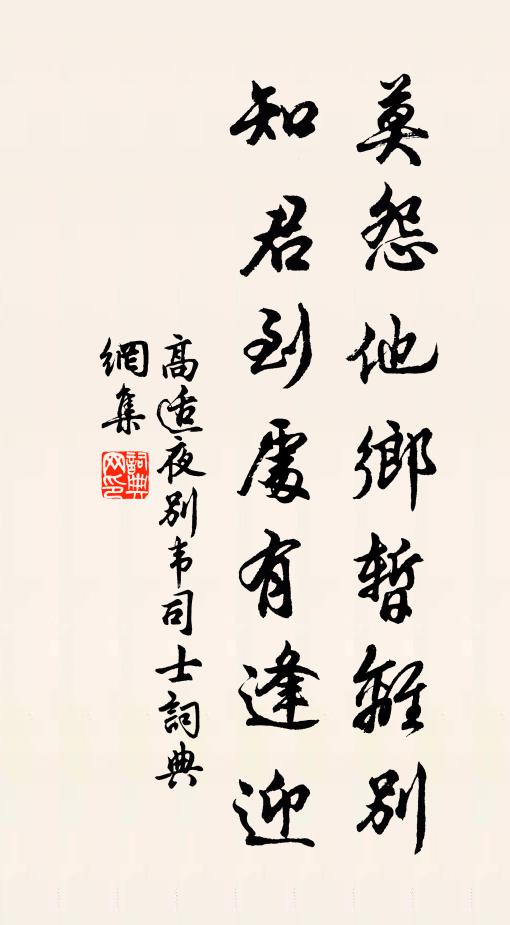 莫怨他鄉暫離別
知君到處有逢迎
高适夜別韦司士詞典
網集
詞典網印